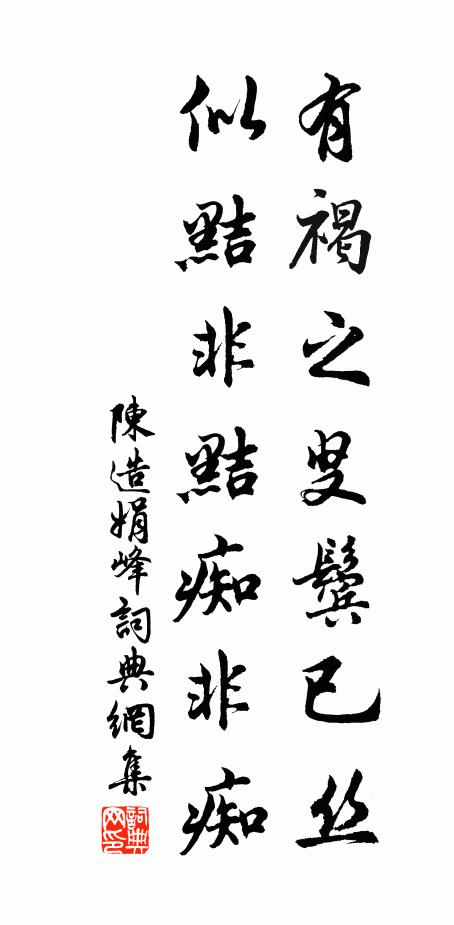 有褐之叟鬓已丝
似黠非黠痴非痴
陳造娟峰詞典網集
詞典网印